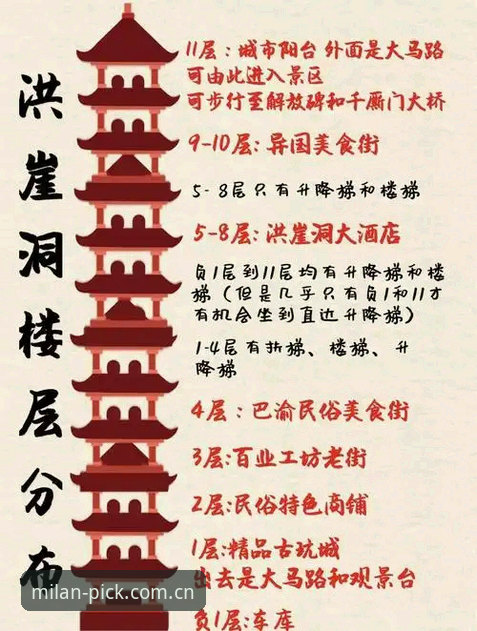 洪崖洞楼层分布
11层：城市阳台 外面是大马路
可由此进入景区
可步行至解放碑和千厮门大桥
9-10层：异国美食街
5-8层只有升降梯和楼梯
5-8层：洪崖洞大酒店
负1层到11层均有升降梯和楼
梯（但是几乎只有负1和11才
有机会坐到直达升降梯）
1-4层有折梯、楼梯、升
降梯
4层：巴渝民俗美食街
3层：百业工坊老街
2层：民俗特色商铺
1层：精品古玩城
出去是大马路和观景台
负1层：车库
milan-pick.com.cn